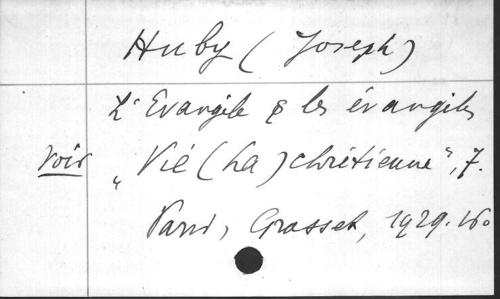 Huby (Joseph)
L'Evangile & les évangiles
voir "Vie (La) chrétienne", 7.
Paris, Grasset, 1929. 16o